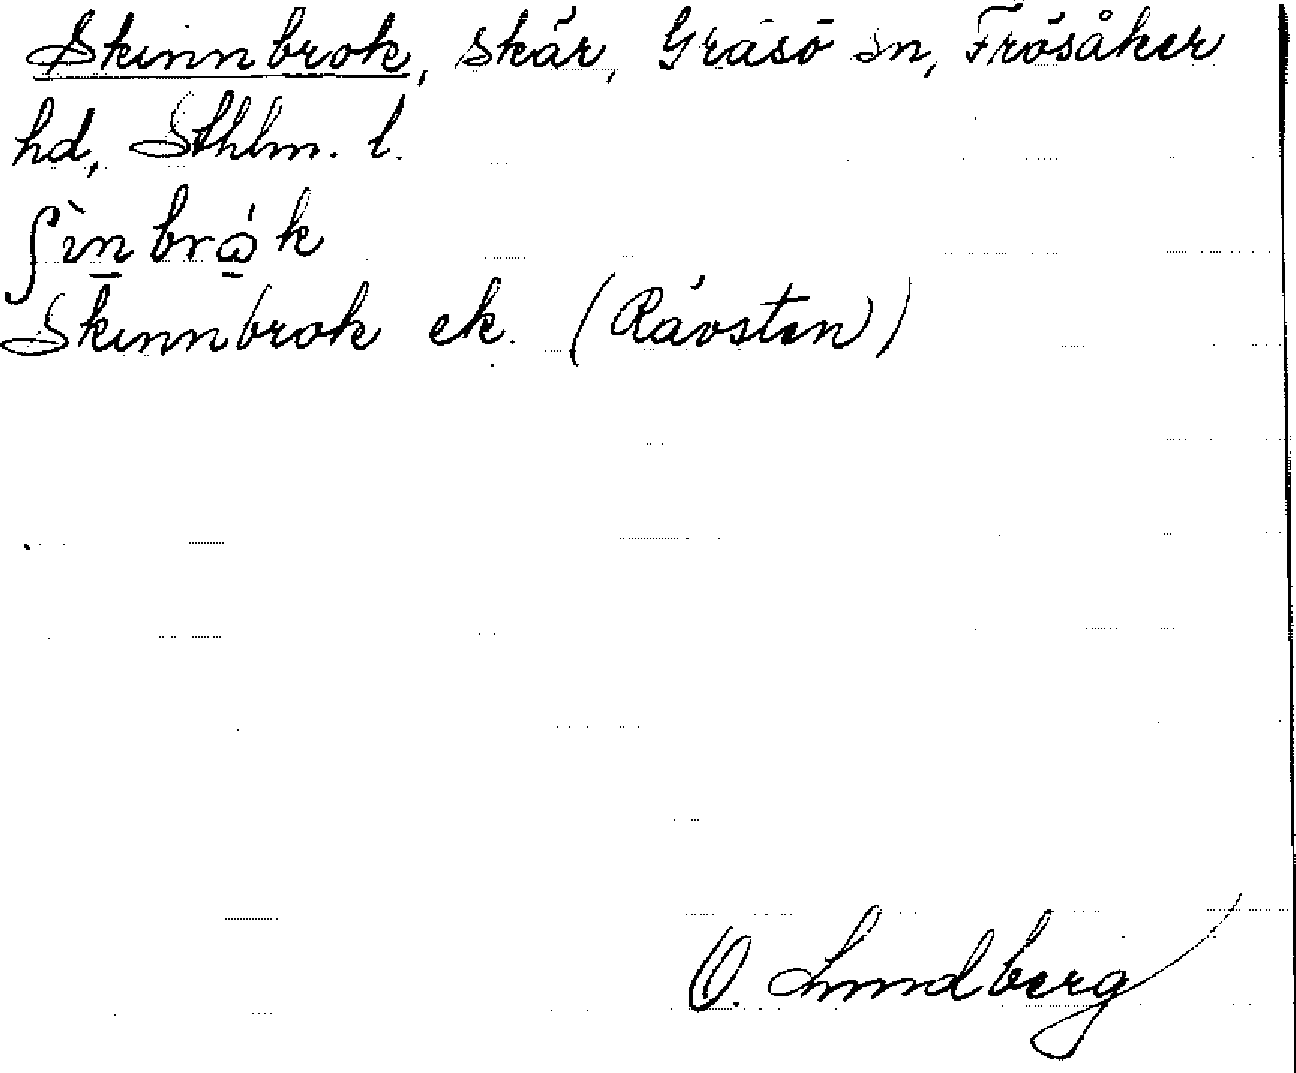 Skinnbrok, skär, Gräsö sn, Frösåker
hd, Sthlm. l.
ʃìn brώ̣k
Skinnbrok ek. (Rävsten)
O. Lundberg